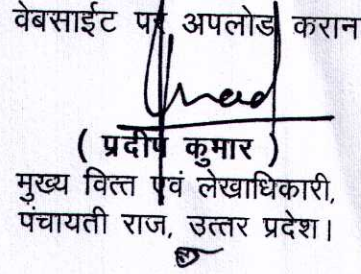 वेबसाईट पर अपलोड करान
( प्रदीप कुमार )
मुख्य वित्त एवं लेखाधिकारी,
पंचायती राज, उत्तर प्रदेश।